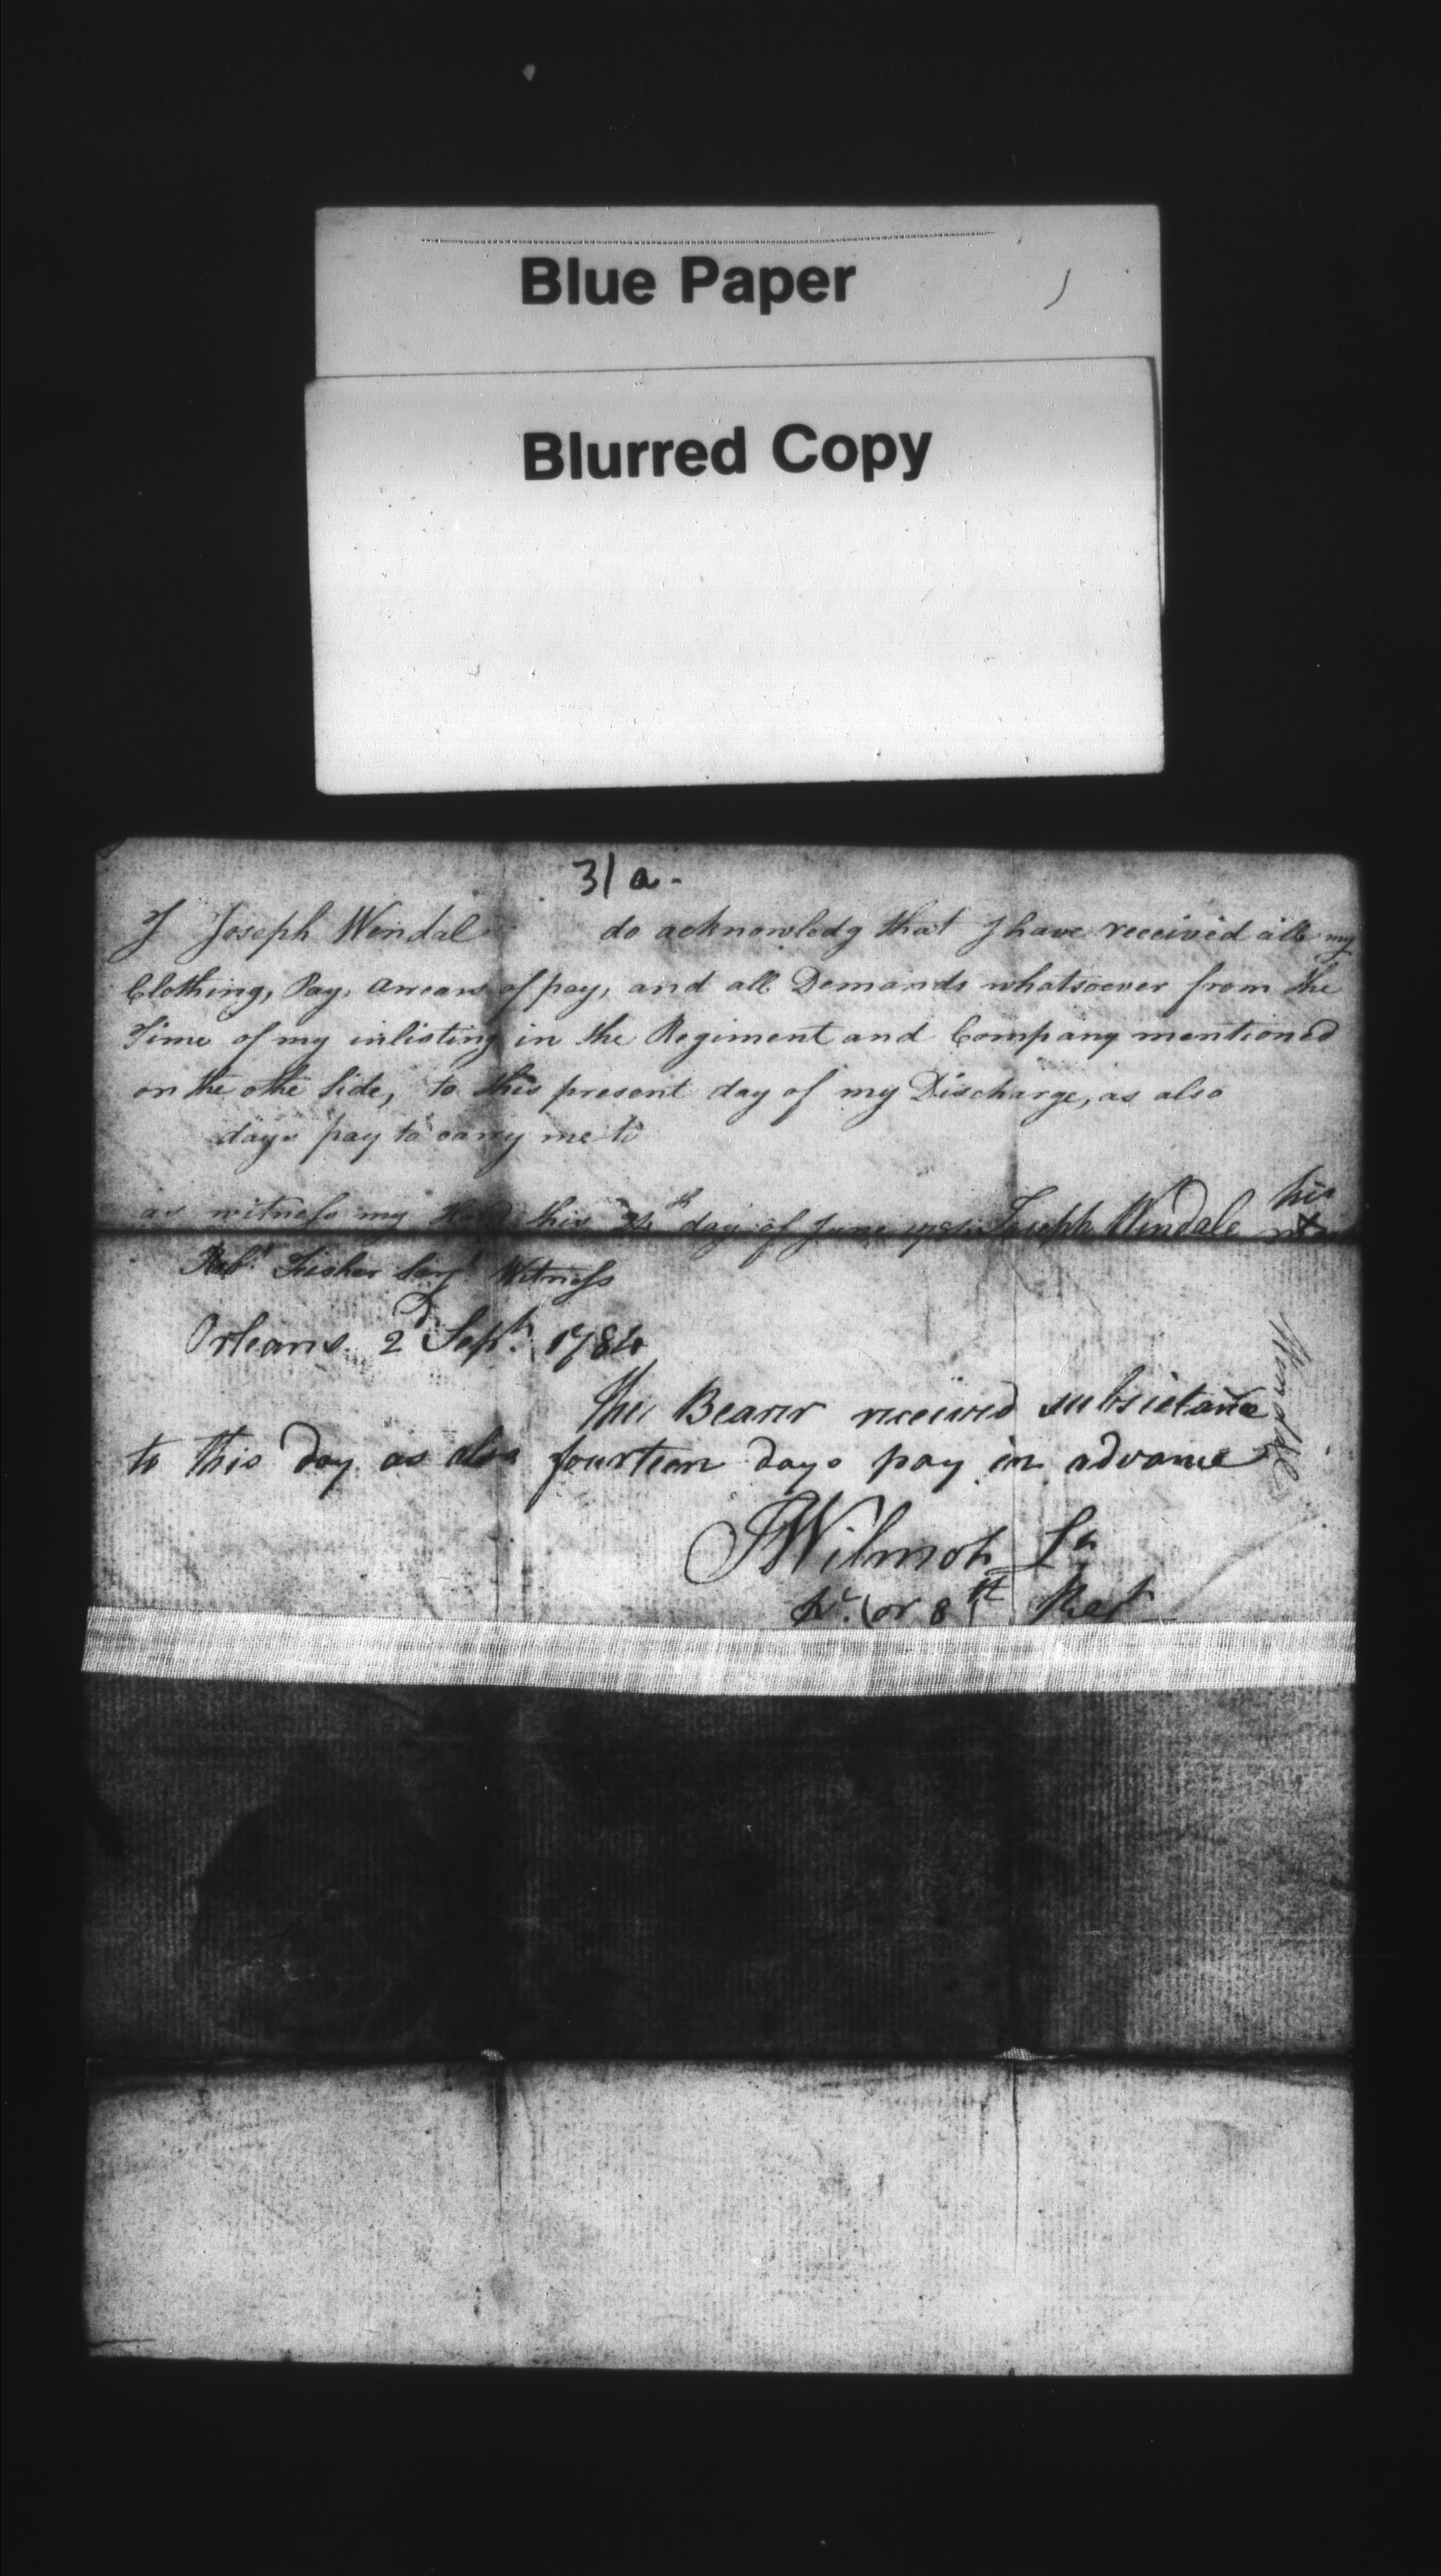 Blue Paper
Blurred Copy
31 a.
I Joseph Windale do acknowledg that I have received all my
Clothing, Pay, arrears of pay, and all Demands whatsoever from the
Time of my inlisting in the Regiment and Company mentioned
on the othe Side, to this present day of my Discharge, as also
days pay to carry me to
as witness my Hand this 24th day of June 1784 Joseph Windale his
Robt. Fisher Serjt. Witness
Orleans. 2d Sept. 1784
The Bearer received subsistance
to this day as also fourteen days pay in advance
JWilmot Lt
Kt. (or 8th) Regt
Windale